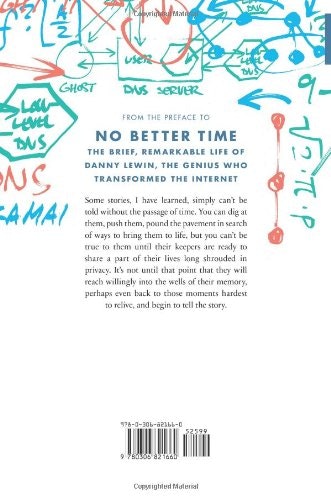 GHOST
USER
DNS SERVER
LOW
LEVEL
DNS
FROM THE PREFACE TO
NO BETTER TIME
THE BRIEF, REMARKABLE LIFE OF
DANNY LEWIN, THE GENIUS WHO
TRANSFORMED THE INTERNET
DNS
AMAI
Some stories, I have learned, simply can't be
told without the passage of time. You can dig at
them, push them, pound the pavement in search
of ways to bring them to life, but you can't be
true to them until their keepers are ready to
share a part of their lives long shrouded in
privacy. It's not until that point that they will
reach willingly into the wells of their memory,
perhaps even back to those moments hardest
to relive, and begin to tell the story.
978-0-306-82166-0
52599
9 780306 821660